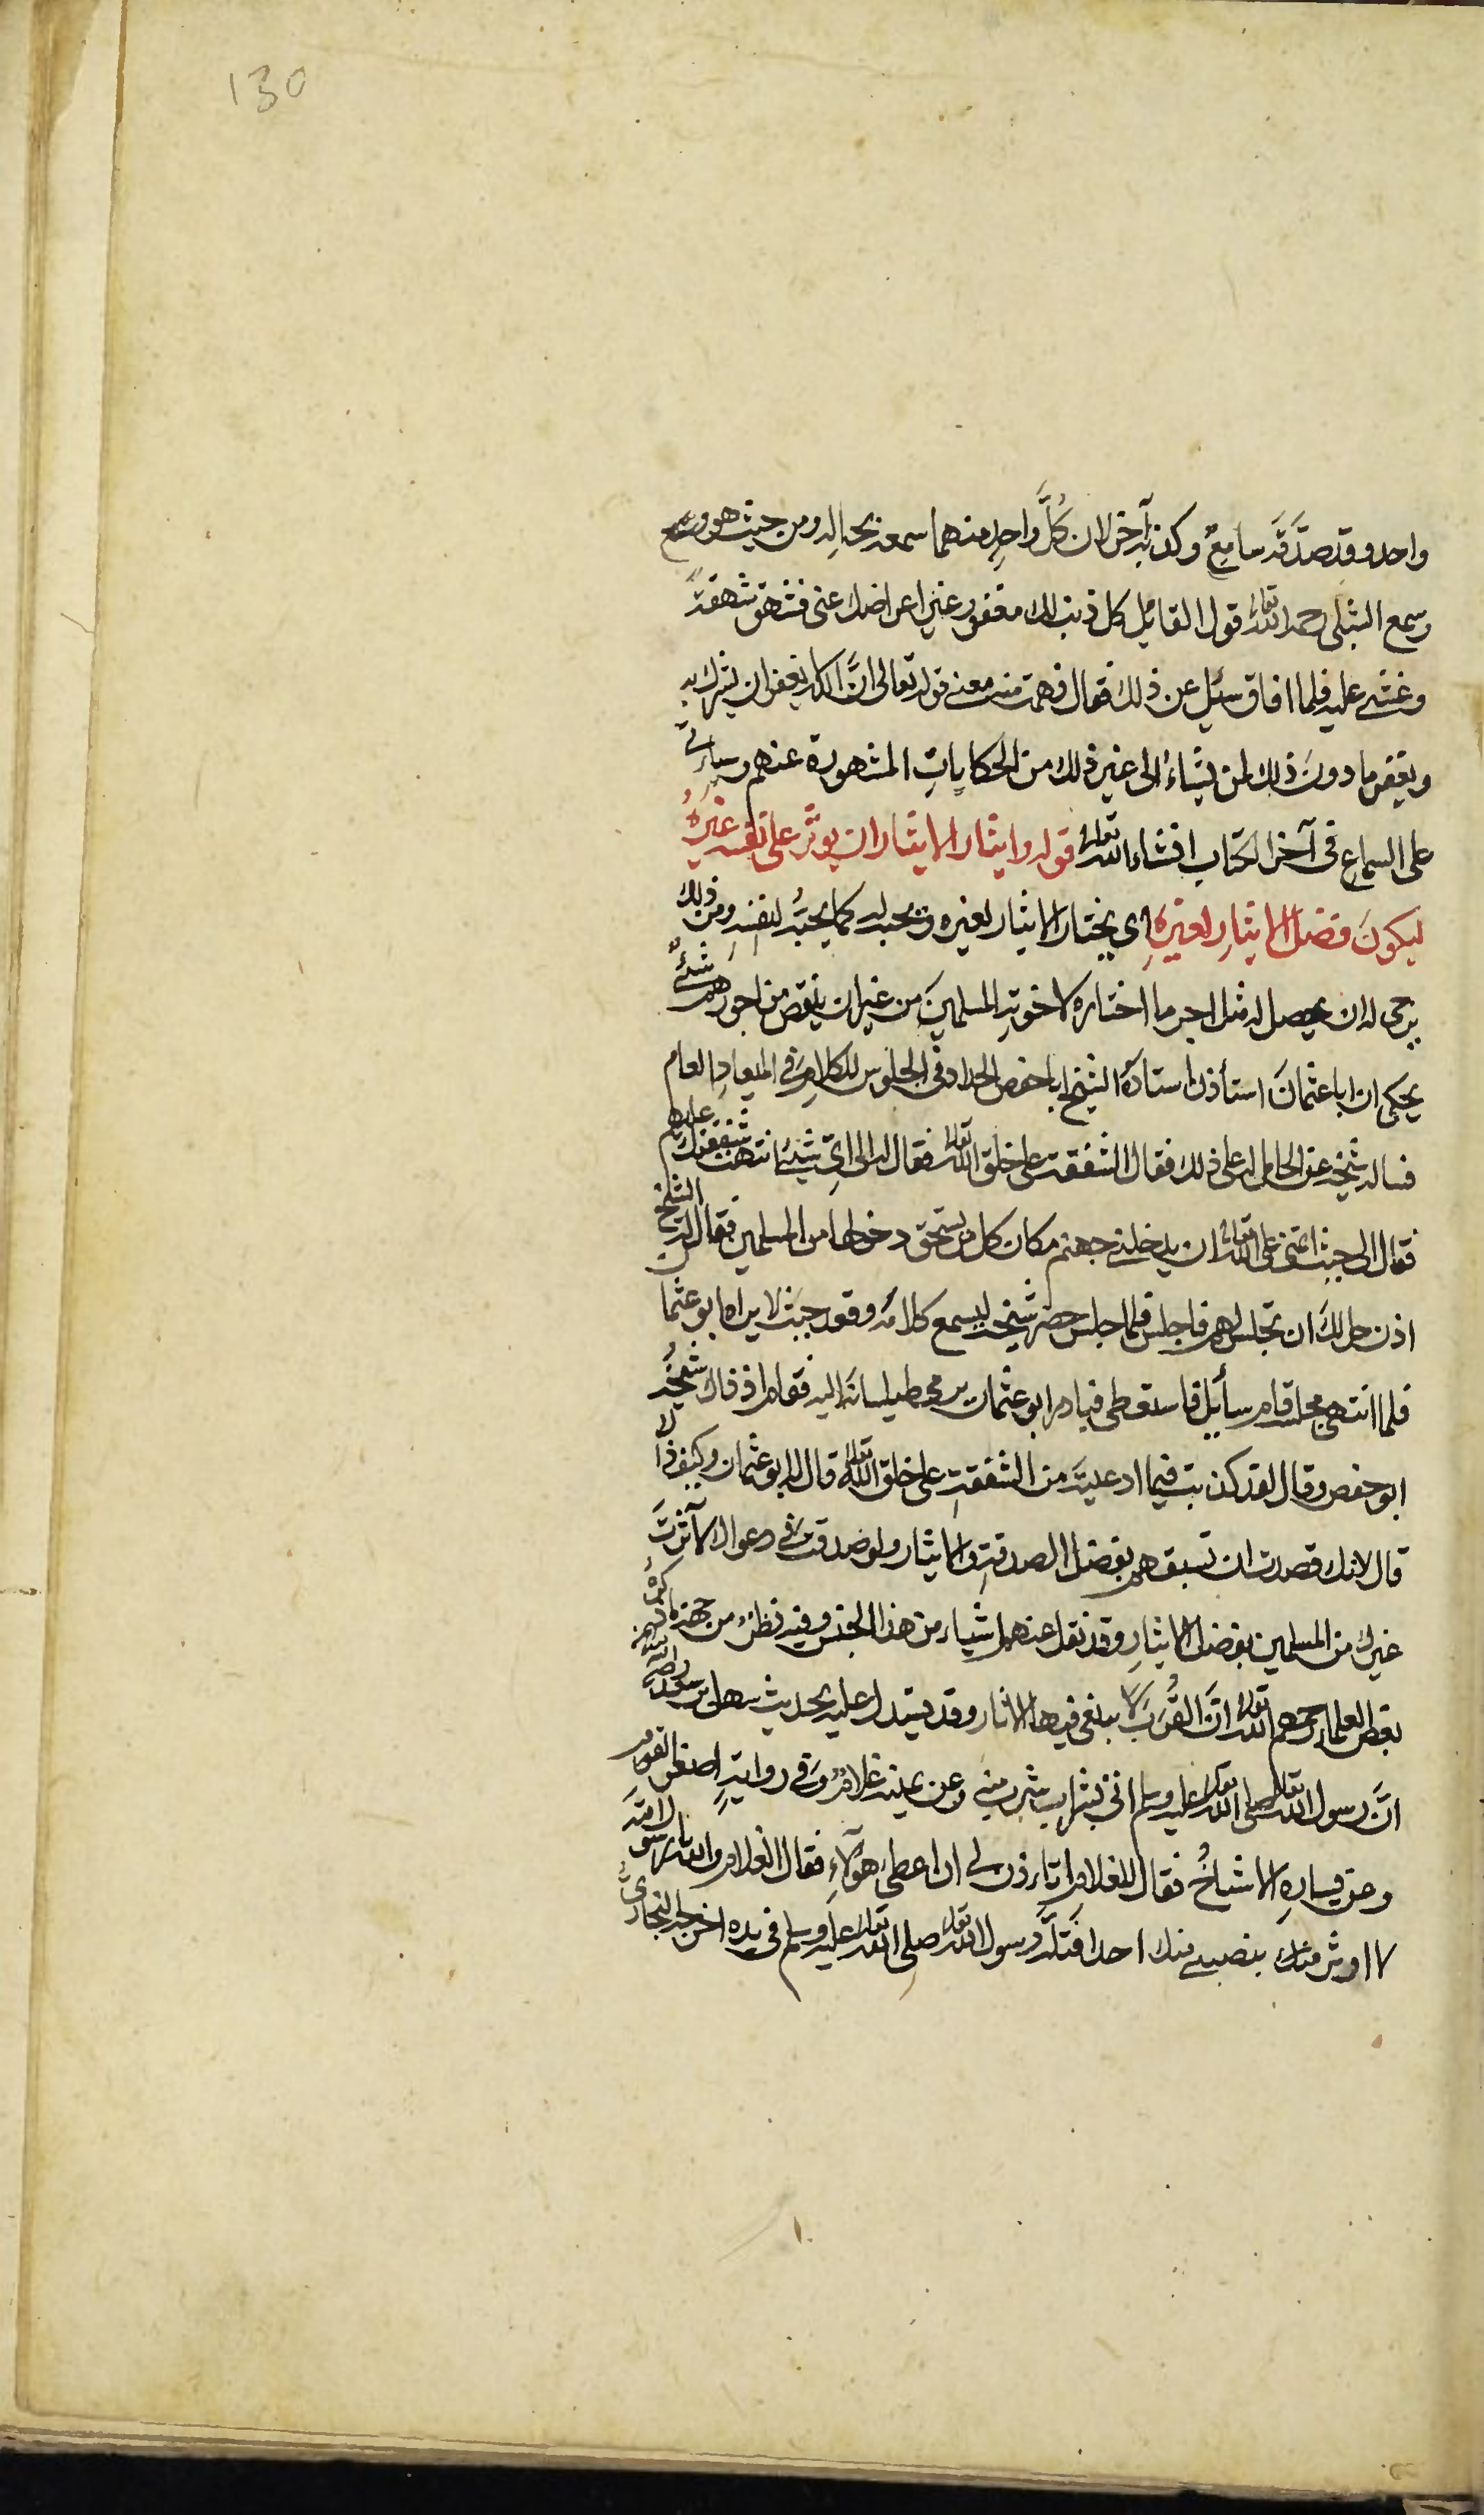 130
واحد وقد صدَّقه سامعٌ وكذبه آخر لان كُلَّ واحدٍ منهما سمعه بحاله ومن حيث هو وسمع
وسمع الشبلى رحمه الله تعالى قول القائل كل ذنب لك مغفور غير اعراضك عنى فشهق شهقةً
وغشي عليه فلما افاق سئل عن ذلك فقال فهمت منه معنى قوله تعالى انَّ الله لا يغفر ان يشرك به
ويغفر ما دونَ ذلك لمن يشاء الى غير ذلك من الحكاياتِ المشهورة عنهم وسياتي
على السماع فى آخر الكتاب انشاءالله تعالى قوله وايثار الايثار ان يوثر على نفسه غيرهُ
ليكونَ فضل الايثارِ لغيرهِ اى يختار الايثار لغيره ويحبه له كما يحبُّه لنفسهِ ومن ذلك
يرجى له ان يحصل له مثل اجر ما اختاره لاخوته المسلمينَ من غير ان ينقص من اجورهم شئٌ
يحكى ان ابا عثمانَ استأذن استاذه الشيخ ابا حفص الحداد فى الجلوس للكلام فى الميعادِ العام
فساله شيخه عن الحامل له على ذلك فقال الشفقت على خلق الله تعالى فقال له الى اىّ شئ انتهت شفقتك عليهم
فقال الى حيث اتمنى على الله تعالى ان يدخلنى جهنم مكان كل من يستحق دخولها من المسلمين فقال له الشيخ
اذن حل لك ان تجلس لهم فاجلس فلما جلس حضر شيخه ليسمع كلامه وقعد حيث لا يراه ابو عثما
فلما انتهى مجلسه قام سأئل فاستعطى فبادر ابو عثمان يرمى طيلسانه اليه فقام اذ ذاك شيخه
ابو حفص وقال لقد كذبت فيما ادعيته من الشفقتِ على خلق الله تعالى قال له ابو عثمان وكيف ذلك
قال لانك قصدت ان تسبقهم بفضل الصدقتِ والايثار ولو صدقت فى دعواك لآثرتَ
غيرك من المسلمين بفضل الايثارِ وقد نقل عنهم اشياء من هذا الجنس وفيه نظرٌ من جهة ما ذكره
بعض العلماء رحمهم الله تعالى انَّ القُرَبَ لا ينبغى فيها الايثار وقد يستدل عليه بحديث سهل بن سعد رضى الله عنه
انَّ رسول الله تعالى صلى الله تعالى عليه وسلم اتى بشراب فشرب منه وعن يمينه غلامٌ وفى روايةٍ اصغر القوم
وعن يسارهِ الاشياخُ فقال للغلام اتاذن لى ان اعطى هؤلآءِ فقال الغلام والله يا رسول الله
لا اوثر منك بنصيبى منك احدا فتلَّه رسول الله تعالى صلى الله تعالى عليه وسلم فى يده اخرجه البخارىُّ